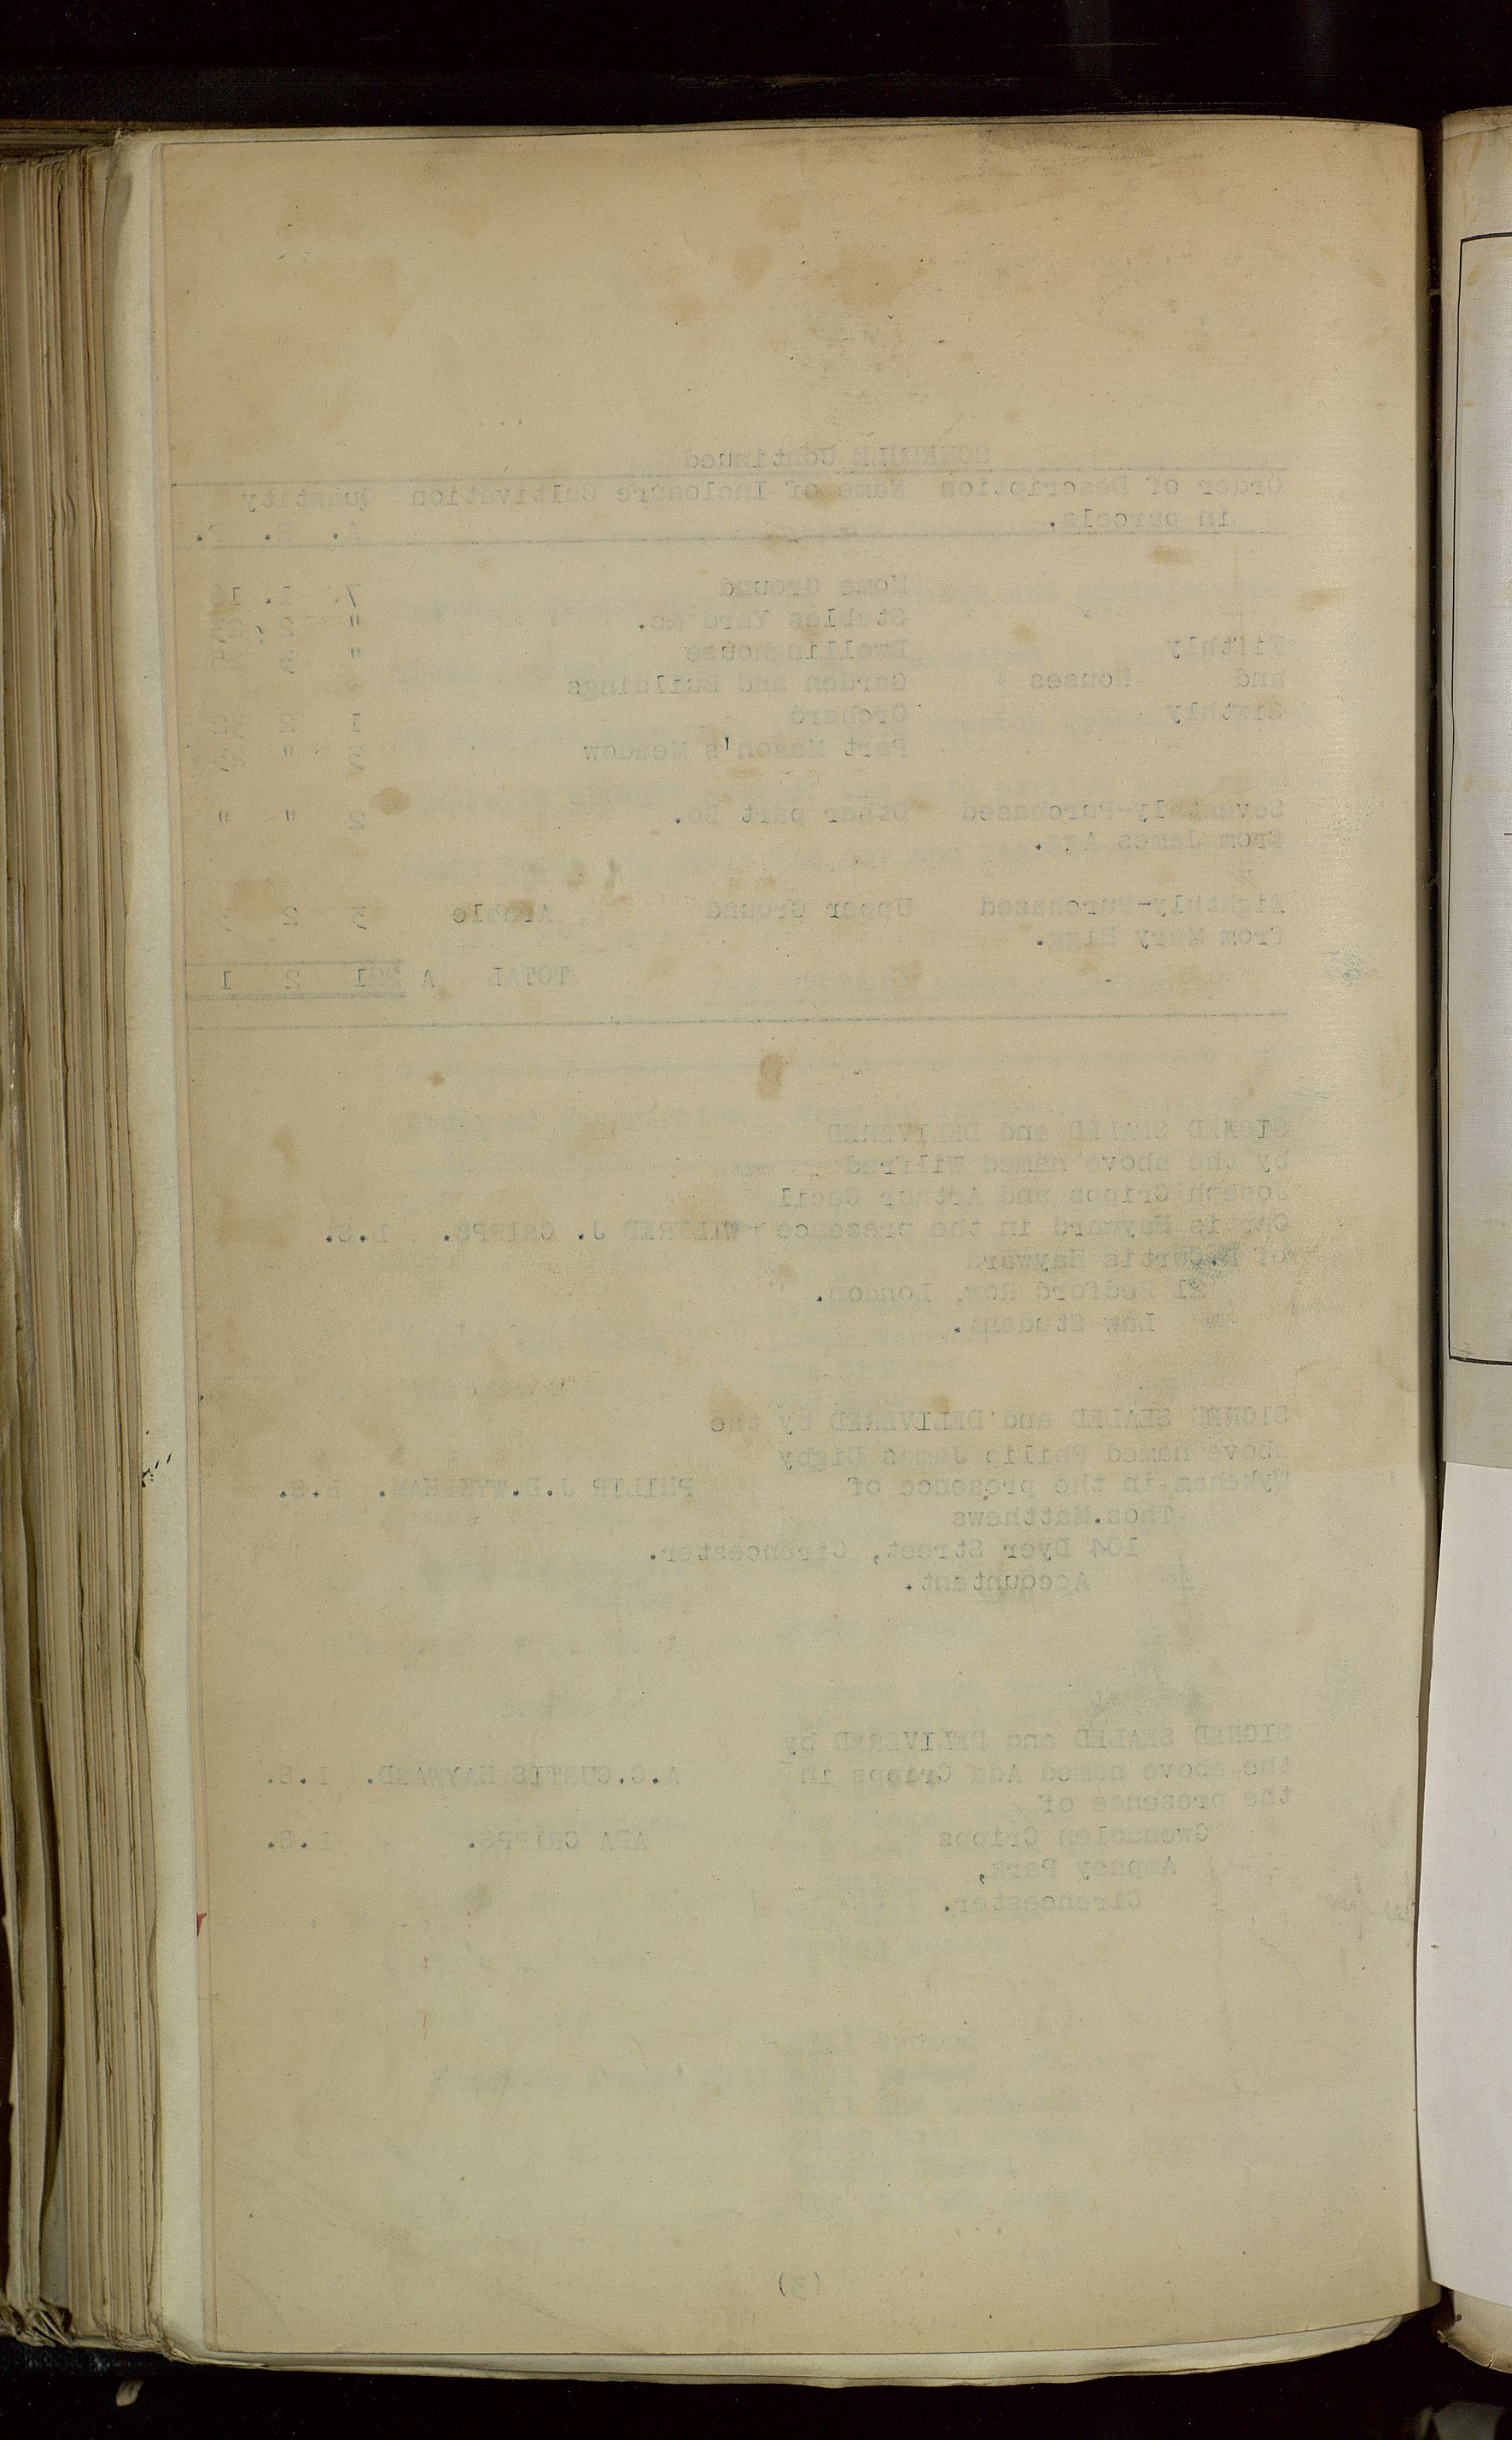 SCHEDULE Continued
Order of Description Name of Inclosure Cultivation Quantity
in parcels. A. R. P.
Home Ground 7. 1.
Stables Yard &c. " 2
Fifthly Dwellin house " 3 25
and Houses Garden and Buildings
Sixthly Orchard 1 2
Part Mason's Meadow 3 "
Seventhly-Purchased Other part Do. 2 " "
from James
Eighthly-Purchased Upper Ground Arable 3 2 3
from Mary
TOTAL A 2 1
SIGNED SEALED and DELIVERED
by the above named Wilfred
Joseph Cripps and Arthur Cecil
Curtis Hayward in the presence WILFRED J. CRIPPS. L.S.
of Curtis Hayward
21 Bedford Row, London.
Law Student.
SIGNED SEALED and DELIVERED by the
above named Philip James Digby
Wykeham in the presence of PHILIP J.D.WYKEHAM. L.S.
Thos.Matthews
104 Dyer Street, Cirencester.
Accountant.
SIGNED SEALED and DELIVERED by
the above named Ada Cripps in A.C.CURTIS HAYWARD. L.S.
the presence of
Gwendolen Cripps ADA CRIPPS. L.S.
Ampney Park,
Cirencester.